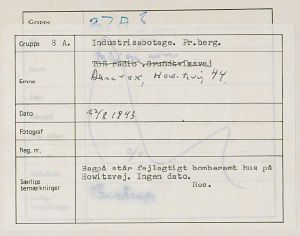 Gruppe 27 A 3
Gruppe 8 A. Industrisabotage. Fr.berg.
TOR radio, Grundtvigsvej
Emne Danavox, Howitzvej 44.
Dato 27/8 1943
Fotograf
Neg. nr.
Bagpå står fejlagtigt bomberamt hus på
Særlige bemærkninger Howitzvej. Ingen dato.
Ros.